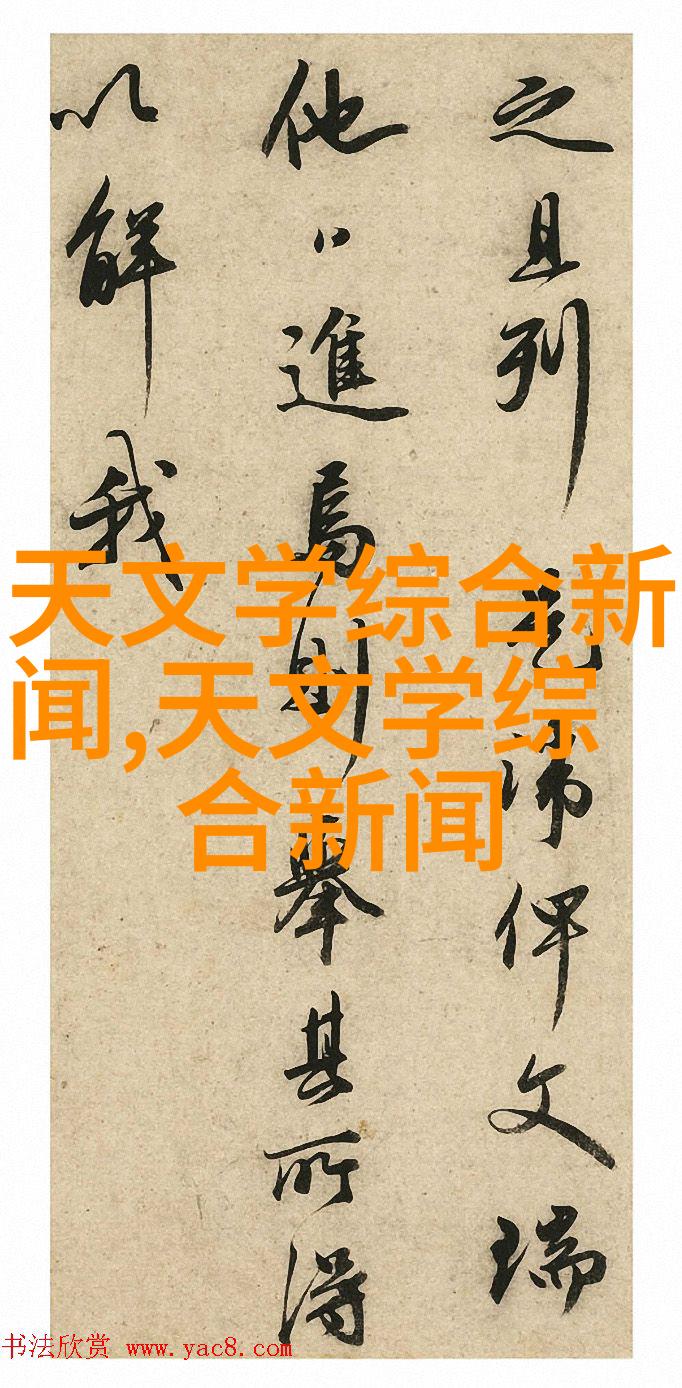 之且列諱俾文瑞
他進焉則舉其所得
以解我
天文学综合新
闻,天文学综
合新闻
书法欣赏 www.yac8.com